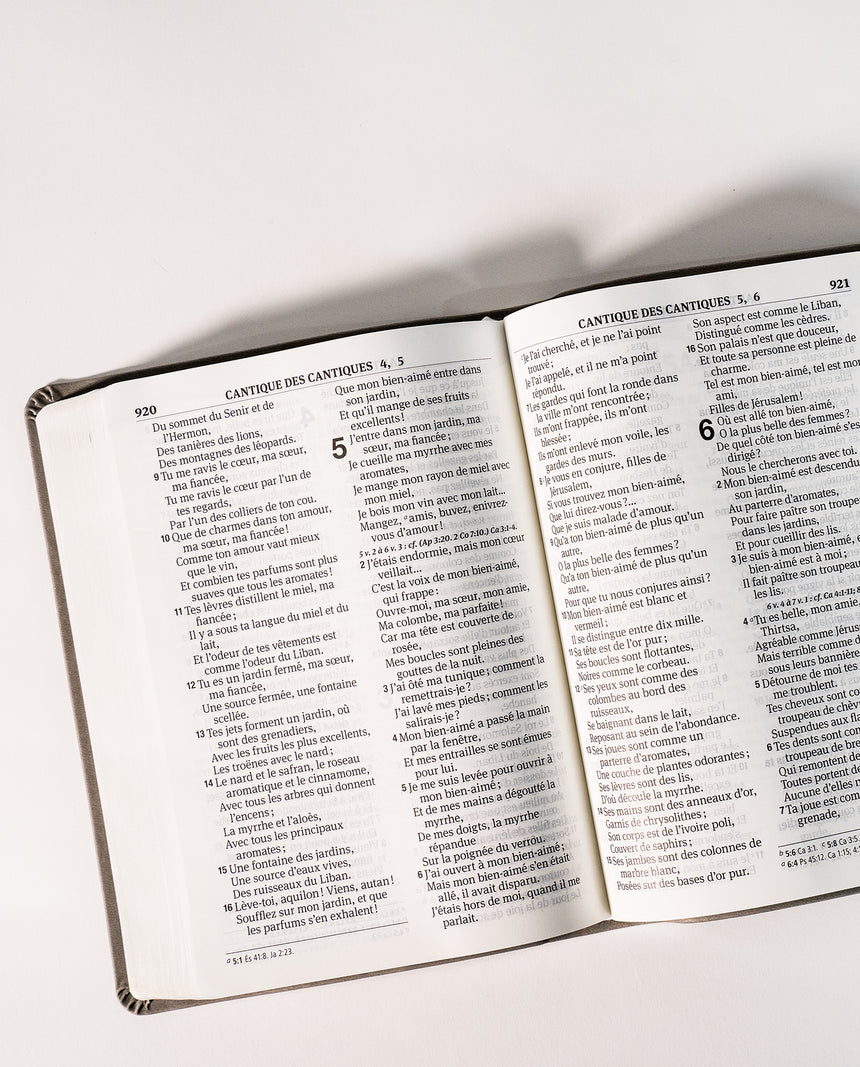 920
CANTIQUE DES CANTIQUES 4, 5
Du sommet du Senir et de
l'Hermon,
Des tanières des lions,
Des montagnes des léopards.
9 Tu me ravis le cœur, ma sœur,
ma fiancée,
Tu me ravis le cœur par l'un de
tes regards,
Par l'un des colliers de ton cou.
10 Que de charmes dans ton amour,
ma sœur, ma fiancée !
Comme ton amour vaut mieux
que le vin,
Et combien tes parfums sont plus
suaves que tous les aromates !
11 Tes lèvres distillent le miel, ma
fiancée ;
Il y a sous ta langue du miel et du
lait,
Et l'odeur de tes vêtements est
comme l'odeur du Liban.
12 Tu es un jardin fermé, ma sœur,
ma fiancée,
Une source fermée, une fontaine
scellée.
13 Tes jets forment un jardin, où
sont des grenadiers,
Avec les fruits les plus excellents,
Les troënes avec le nard ;
14 Le nard et le safran, le roseau
aromatique et le cinnamome,
Avec tous les arbres qui donnent
l'encens ;
La myrrhe et l'aloès,
Avec tous les principaux
aromates ;
15 Une fontaine des jardins,
Une source d'eaux vives,
Des ruisseaux du Liban.
16 Lève-toi, aquilon ! Viens, autan !
Soufflez sur mon jardin, et que
les parfums s'en exhalent !
a 5:1 És 41:8. Ja 2:23.
Que mon bien-aimé entre dans
son jardin,
Et qu'il mange de ses fruits
excellents !
5 J'entre dans mon jardin, ma
sœur, ma fiancée ;
Je cueille ma myrrhe avec mes
aromates,
Je mange mon rayon de miel avec
mon miel,
Je bois mon vin avec mon lait...
Mangez, a amis, buvez, enivrez-
vous d'amour !
5 v. 2 à 6 v. 3 : cf. (Ap 3:20. 2 Co 7:10.) Ca 3:1-4.
2 J'étais endormie, mais mon cœur
veillait...
C'est la voix de mon bien-aimé,
qui frappe :
Ouvre-moi, ma sœur, mon amie,
Ma colombe, ma parfaite !
Car ma tête est couverte de
rosée,
Mes boucles sont pleines des
gouttes de la nuit.
3 J'ai ôté ma tunique ; comment la
remettrais-je ?
J'ai lavé mes pieds ; comment les
salirais-je ?
4 Mon bien-aimé a passé la main
par la fenêtre,
Et mes entrailles se sont émues
pour lui.
5 Je me suis levée pour ouvrir à
mon bien-aimé ;
Et de mes mains a dégoutté la
myrrhe,
De mes doigts, la myrrhe
répandue
Sur la poignée du verrou.
6 J'ai ouvert à mon bien-aimé ;
Mais mon bien-aimé s'en était
allé, il avait disparu.
J'étais hors de moi, quand il me
parlait.
CANTIQUE DES CANTIQUES 5, 6
921
Je l'ai cherché, et je ne l'ai point
trouvé ;
Je l'ai appelé, et il ne m'a point
répondu.
7 Les gardes qui font la ronde dans
la ville m'ont rencontrée ;
Ils m'ont frappée, ils m'ont
blessée ;
Ils m'ont enlevé mon voile, les
gardes des murs.
8 Je vous en conjure, filles de
Jérusalem,
Si vous trouvez mon bien-aimé,
Que lui direz-vous ?...
Que je suis malade d'amour.
9 Qu'a ton bien-aimé de plus qu'un
autre,
O la plus belle des femmes ?
Qu'a ton bien-aimé de plus qu'un
autre,
Pour que tu nous conjures ainsi ?
10 Mon bien-aimé est blanc et
vermeil ;
Il se distingue entre dix mille.
11 Sa tête est de l'or pur ;
Ses boucles sont flottantes,
Noires comme le corbeau.
12 Ses yeux sont comme des
colombes au bord des
ruisseaux,
Se baignant dans le lait,
Reposant au sein de l'abondance.
13 Ses joues sont comme un
parterre d'aromates,
Une couche de plantes odorantes ;
Ses lèvres sont des lis,
D'où découle la myrrhe.
14 Ses mains sont des anneaux d'or,
Garnis de chrysolithes ;
Son corps est de l'ivoire poli,
Couvert de saphirs ;
15 Ses jambes sont des colonnes de
marbre blanc,
Posées sur des bases d'or pur.
Son aspect est comme le Liban,
Distingué comme les cèdres.
16 Son palais n'est que douceur,
Et toute sa personne est pleine de
charme.
Tel est mon bien-aimé, tel est mon
ami,
Filles de Jérusalem !
6 Où est allé ton bien-aimé,
O la plus belle des femmes ?
De quel côté ton bien-aimé s'es
dirigé ?
Nous le chercherons avec toi.
2 Mon bien-aimé est descendu
son jardin,
Au parterre d'aromates,
Pour faire paître son troupe
dans les jardins,
Et pour cueillir des lis.
3 Je suis à mon bien-aimé, e
bien-aimé est à moi ;
Il fait paître son troupeau
les lis.
6 v. 4 à 7 v. 1 : cf. Ca 4:1-11; 8
4 Tu es belle, mon amie,
Thirtsa,
Agréable comme Jérus
Mais terrible comme d
sous leurs bannière
5 Détourne de moi tes
me troublent.
Tes cheveux sont co
troupeau de chèv
Suspendues aux fl
6 Tes dents sont con
troupeau de bre
Qui remontent de
Toutes portent de
Aucune d'elles n
7 Ta joue est com
grenade,
b 5:6 Ca 3:1. c 5:8 Ca 3:5
a 6:4 Ps 45:12. Ca 1:15; 4:1